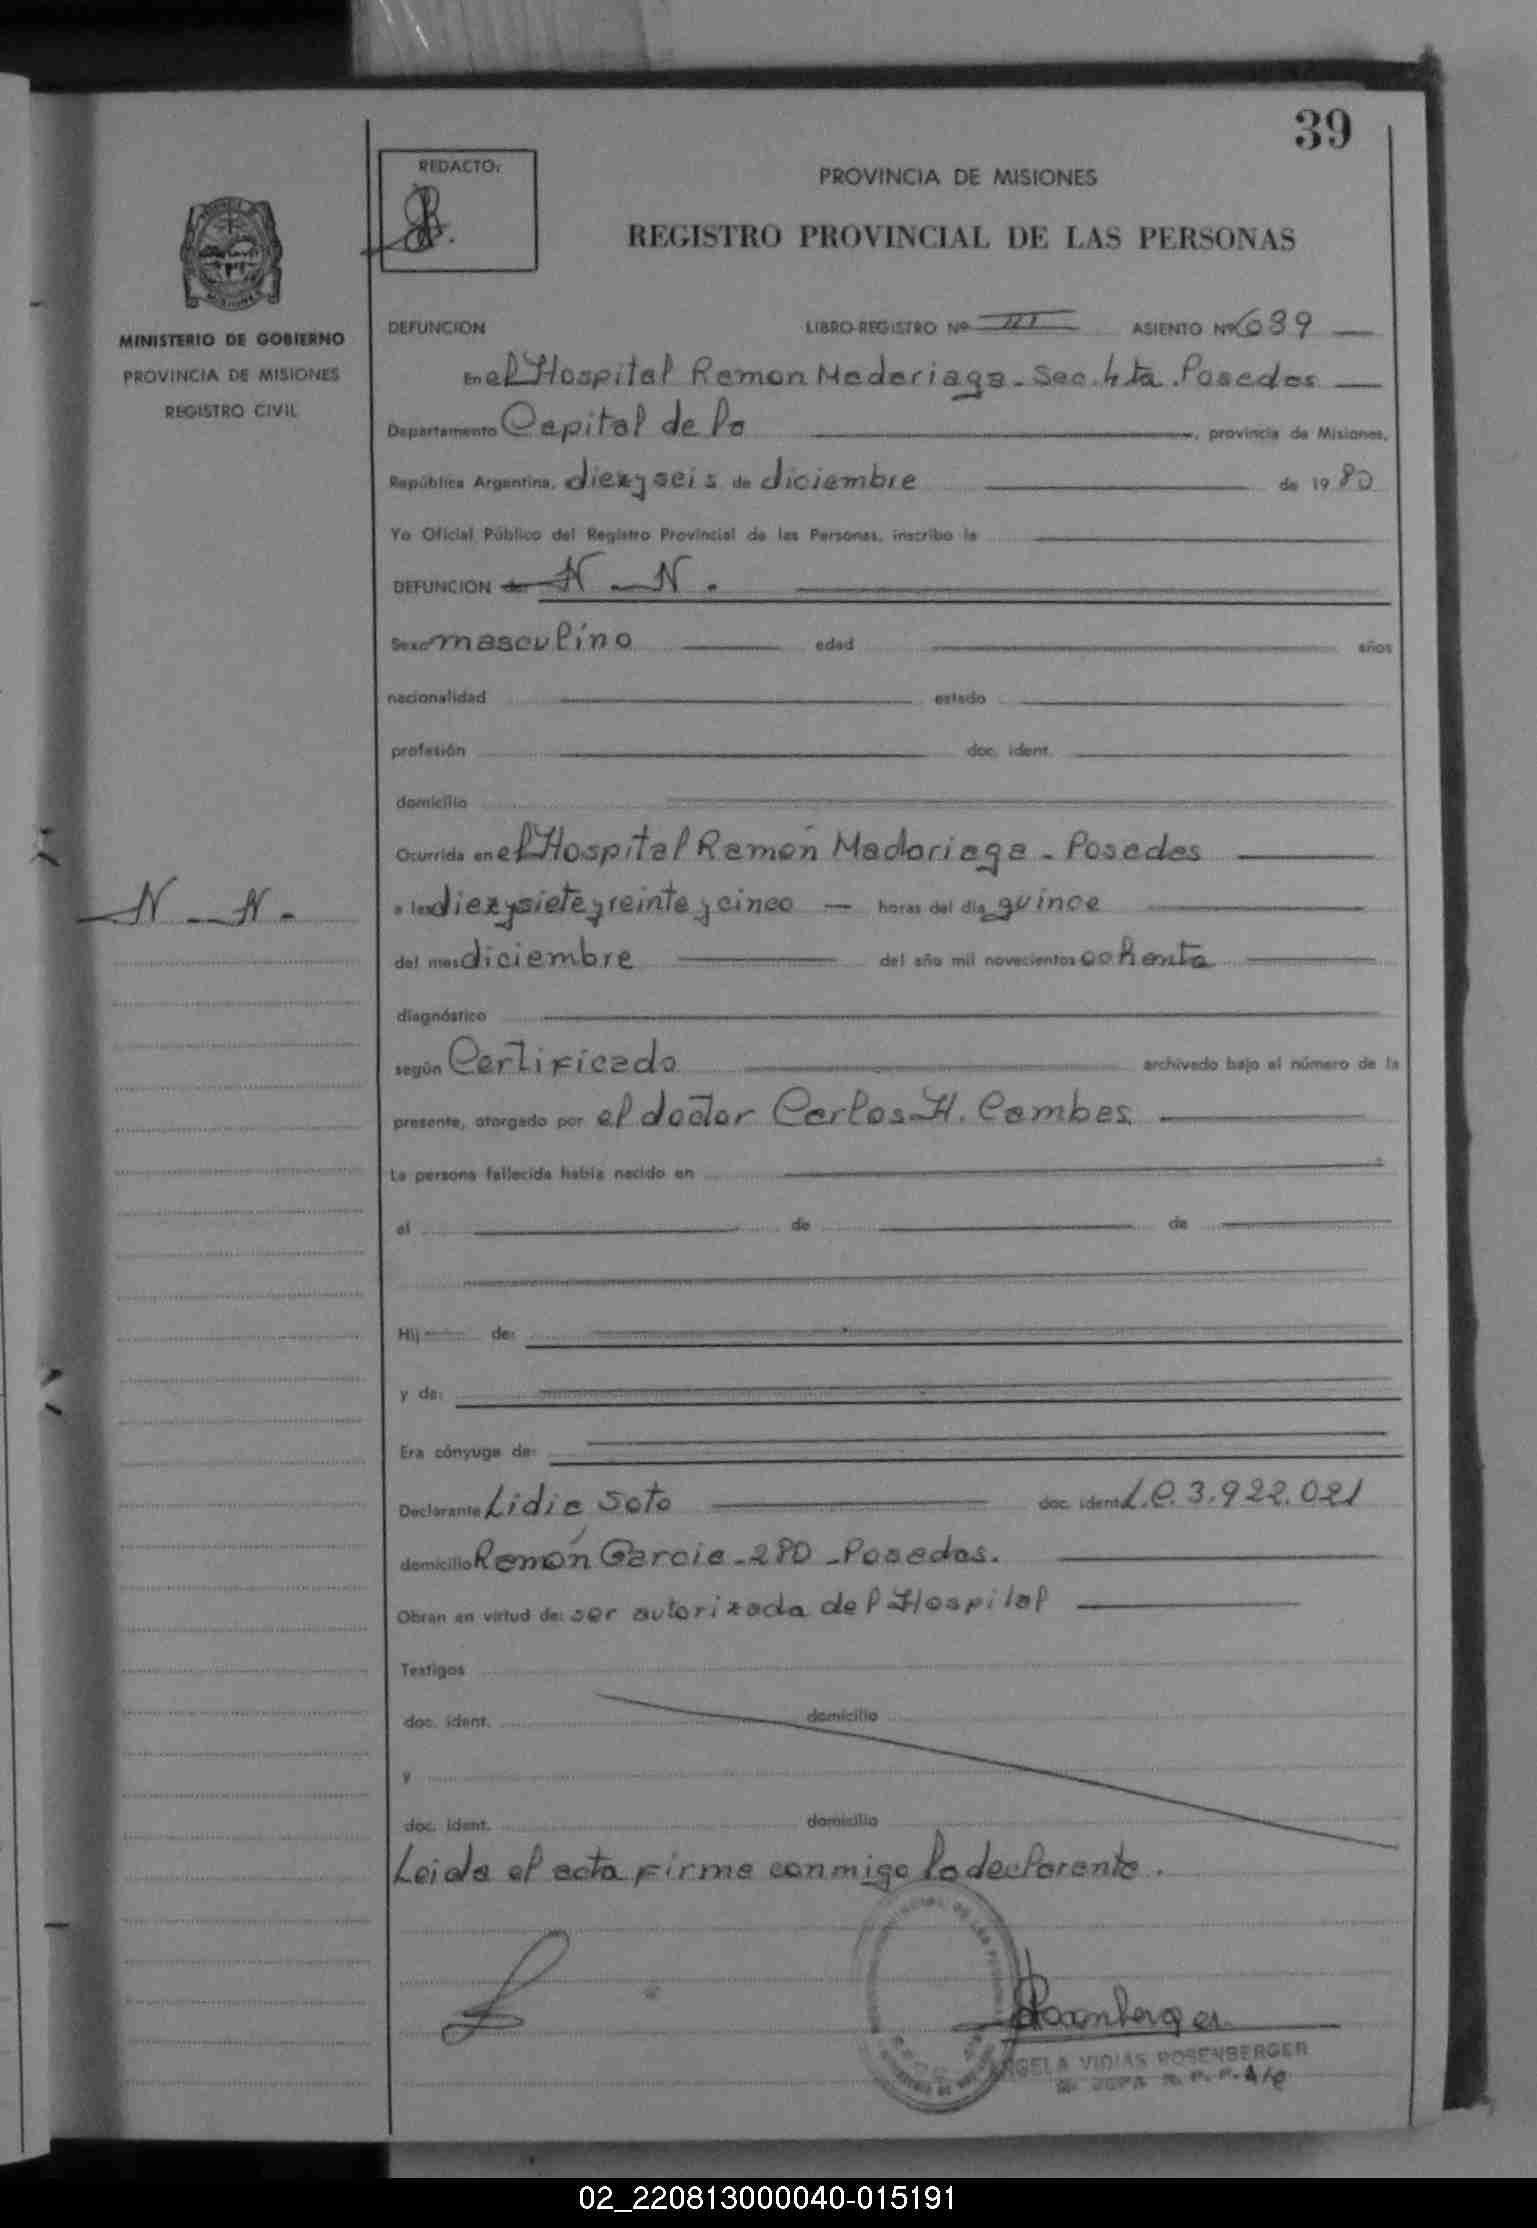 39
REDACTO:
PROVINCIA DE MISIONES
REGISTRO PROVINCIAL DE LAS PERSONAS
MINISTERIO DE GOBIERNO
PROVINCIA DE MISIONES
REGISTRO CIVIL
DEFUNCION LIBRO-REGISTRO Nº III ASIENTO Nº 639
En el Hospital Ramon Madariaga - Sec. 4ta. Posadas
Departamento Capital de la , provincia de Misiones,
República Argentina, diez y seis de diciembre de 1980
Yo Oficial Público del Registro Provincial de las Personas, inscribo la
DEFUNCION de: N - N.
Sexo masculino edad años
nacionalidad estado
profesión doc. ident.
domicilio
Ocurrida en el Hospital Ramón Madariaga - Posadas
N - N.
a las diez y siete y veinte y cinco horas del día quince
del mes diciembre del año mil novecientos ochenta
diagnóstico
según Certificado archivado bajo el número de la
presente, otorgado por el doctor Carlos H. Cambes.
La persona fallecida había nacido en
el de de
Hij de:
y de:
Era cónyuge de:
Declarante Lidia Soto doc. ident. L.C. 3.922.021
domicilio Ramón Garcia - 280 - Posadas.
Obran en virtud de: ser autorizada del Hospital
Testigos
doc. ident. domicilio
y
doc. ident. domicilio
Leida el acta firma conmigo la declarante.
Rosenberger
ANGELA VIDIAS ROSENBERGER
02_220813000040-015191